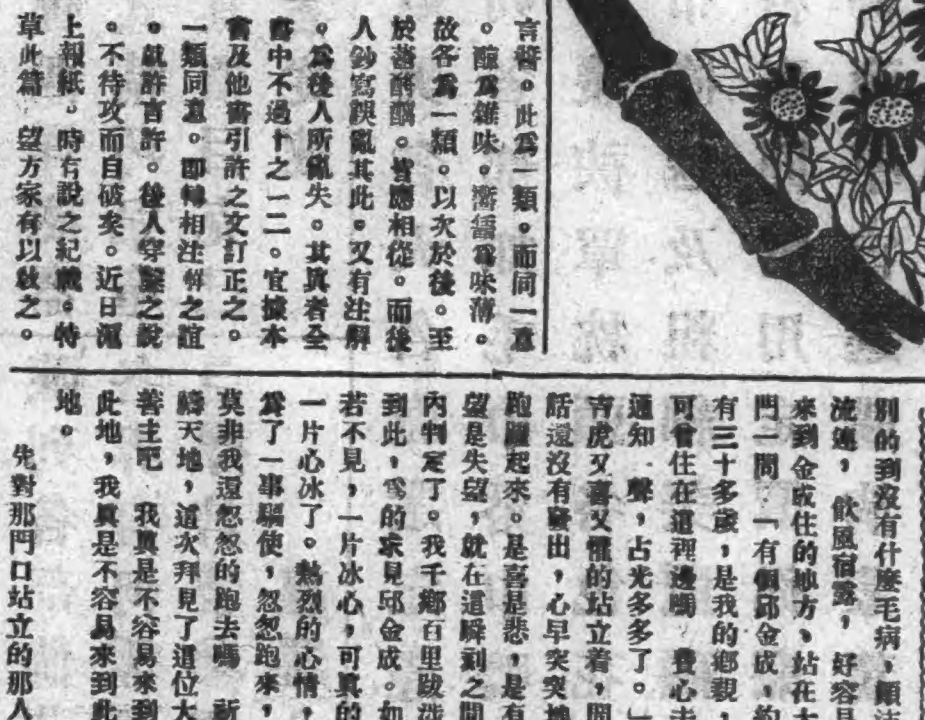 言醬。此爲一類。而同一意
。醶爲雜味。𤁋𤁋爲味薄。
故各爲一類。以次於後。至
於醬醻醧。皆應相從。而後
人鈔寫誤亂其此。又有注解
。爲後人所亂失。其眞者全
書中不過十之一二。宜據本
書及他書引許之文訂正之。
一類同意。卽轉相注解之誼
。戱許言許。後人穿鑿之說
。不待攻而自破矣。近日滬
上報紙。時有說之紀載。特
草此篇 望方家有以敎之。
別的到沒有什麼毛病,順
流連,飲風宿露,好容易
來到金成住的地方、站在大
門一問.「有個邱金成,約
有三十多歲,是我的鄉親,
可會住在這裡邊嗎 費心去
通知 聲,占光多多了。」
有虎又喜又懼的站立着,問
話還沒有發出,心早突突地
跑躍起來。是喜是悲,是有
望是失望,就在這瞬刻之間
內判定了。我千鄉百里跋涉
到此,爲的求見邱金成。如
若不見,一片冰心,可眞的
一片心冰了。熱烈的心情,
爲了一事驅使,忽忽跑來,
莫非我還忽忽的跑去嗎 祈
禱天地,這次拜見了這位大
善主吧 我眞是不容易來到
此地,我眞是不容易來到此
地。
先對那門口站立的那人